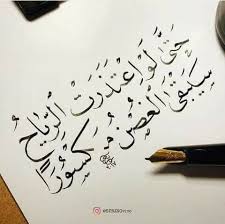 حَتَّى لَو اعْتَذَرَت الرِّيَاحُ
سَيَبْقَى الغُصْنُ مَكسُورًا